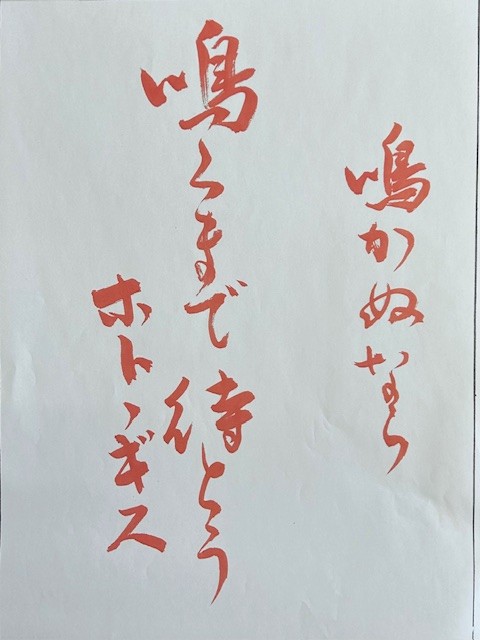 鳴かぬなら
鳴くまで待とう
ホトヽギス